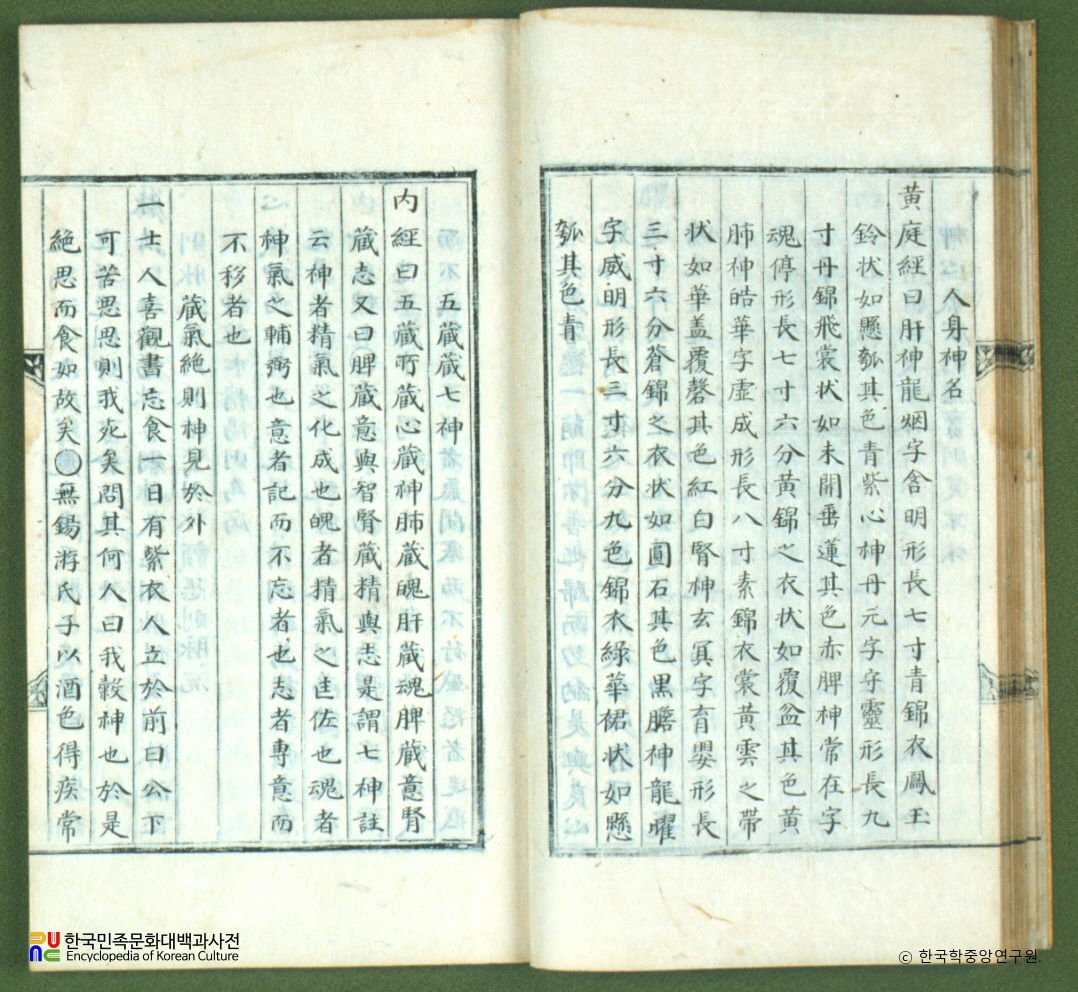 人身神名
黄庭經曰肝神龍烟字含明形長七寸青錦衣鳳玉
鈴状如懸瓠其色青紫心神丹元字守靈形長九
寸丹錦飛裳状如未開垂蓮其色赤脾神常在字
魂停形長七寸六分黄錦之衣状如覆盆其色黄
肺神皓華字虚成形長八寸素錦衣裳黄雲之帶
状如華盖覆磬其色紅白腎神玄冥字育嬰形長
三寸六分蒼錦之衣状如圓石其色黒膽神龍曜
字威明形長三寸六分九色錦衣綠華裙状如懸
瓠其色青
五蔵蔵七神
内經曰五蔵所蔵心蔵神肺蔵魄肝蔵魂脾蔵意腎
蔵志又曰脾蔵意與智腎蔵精與志是謂七神註
云神者精氣之化成也魄者精氣之匡佐也魂者
神氣之輔弼也意者記而不忘者也志者專意而
不移者也
蔵氣絶則神見於外
一士人喜觀書忘食一日有紫衣人立於前曰公下
可苦思思則我死矣問其何人曰我穀神也於是
絶思而食如故矣○無錫游氏子以酒色得疾常
한국민족문화대백과사전
Encyclopedia of Korean Culture
© 한국학중앙연구원.